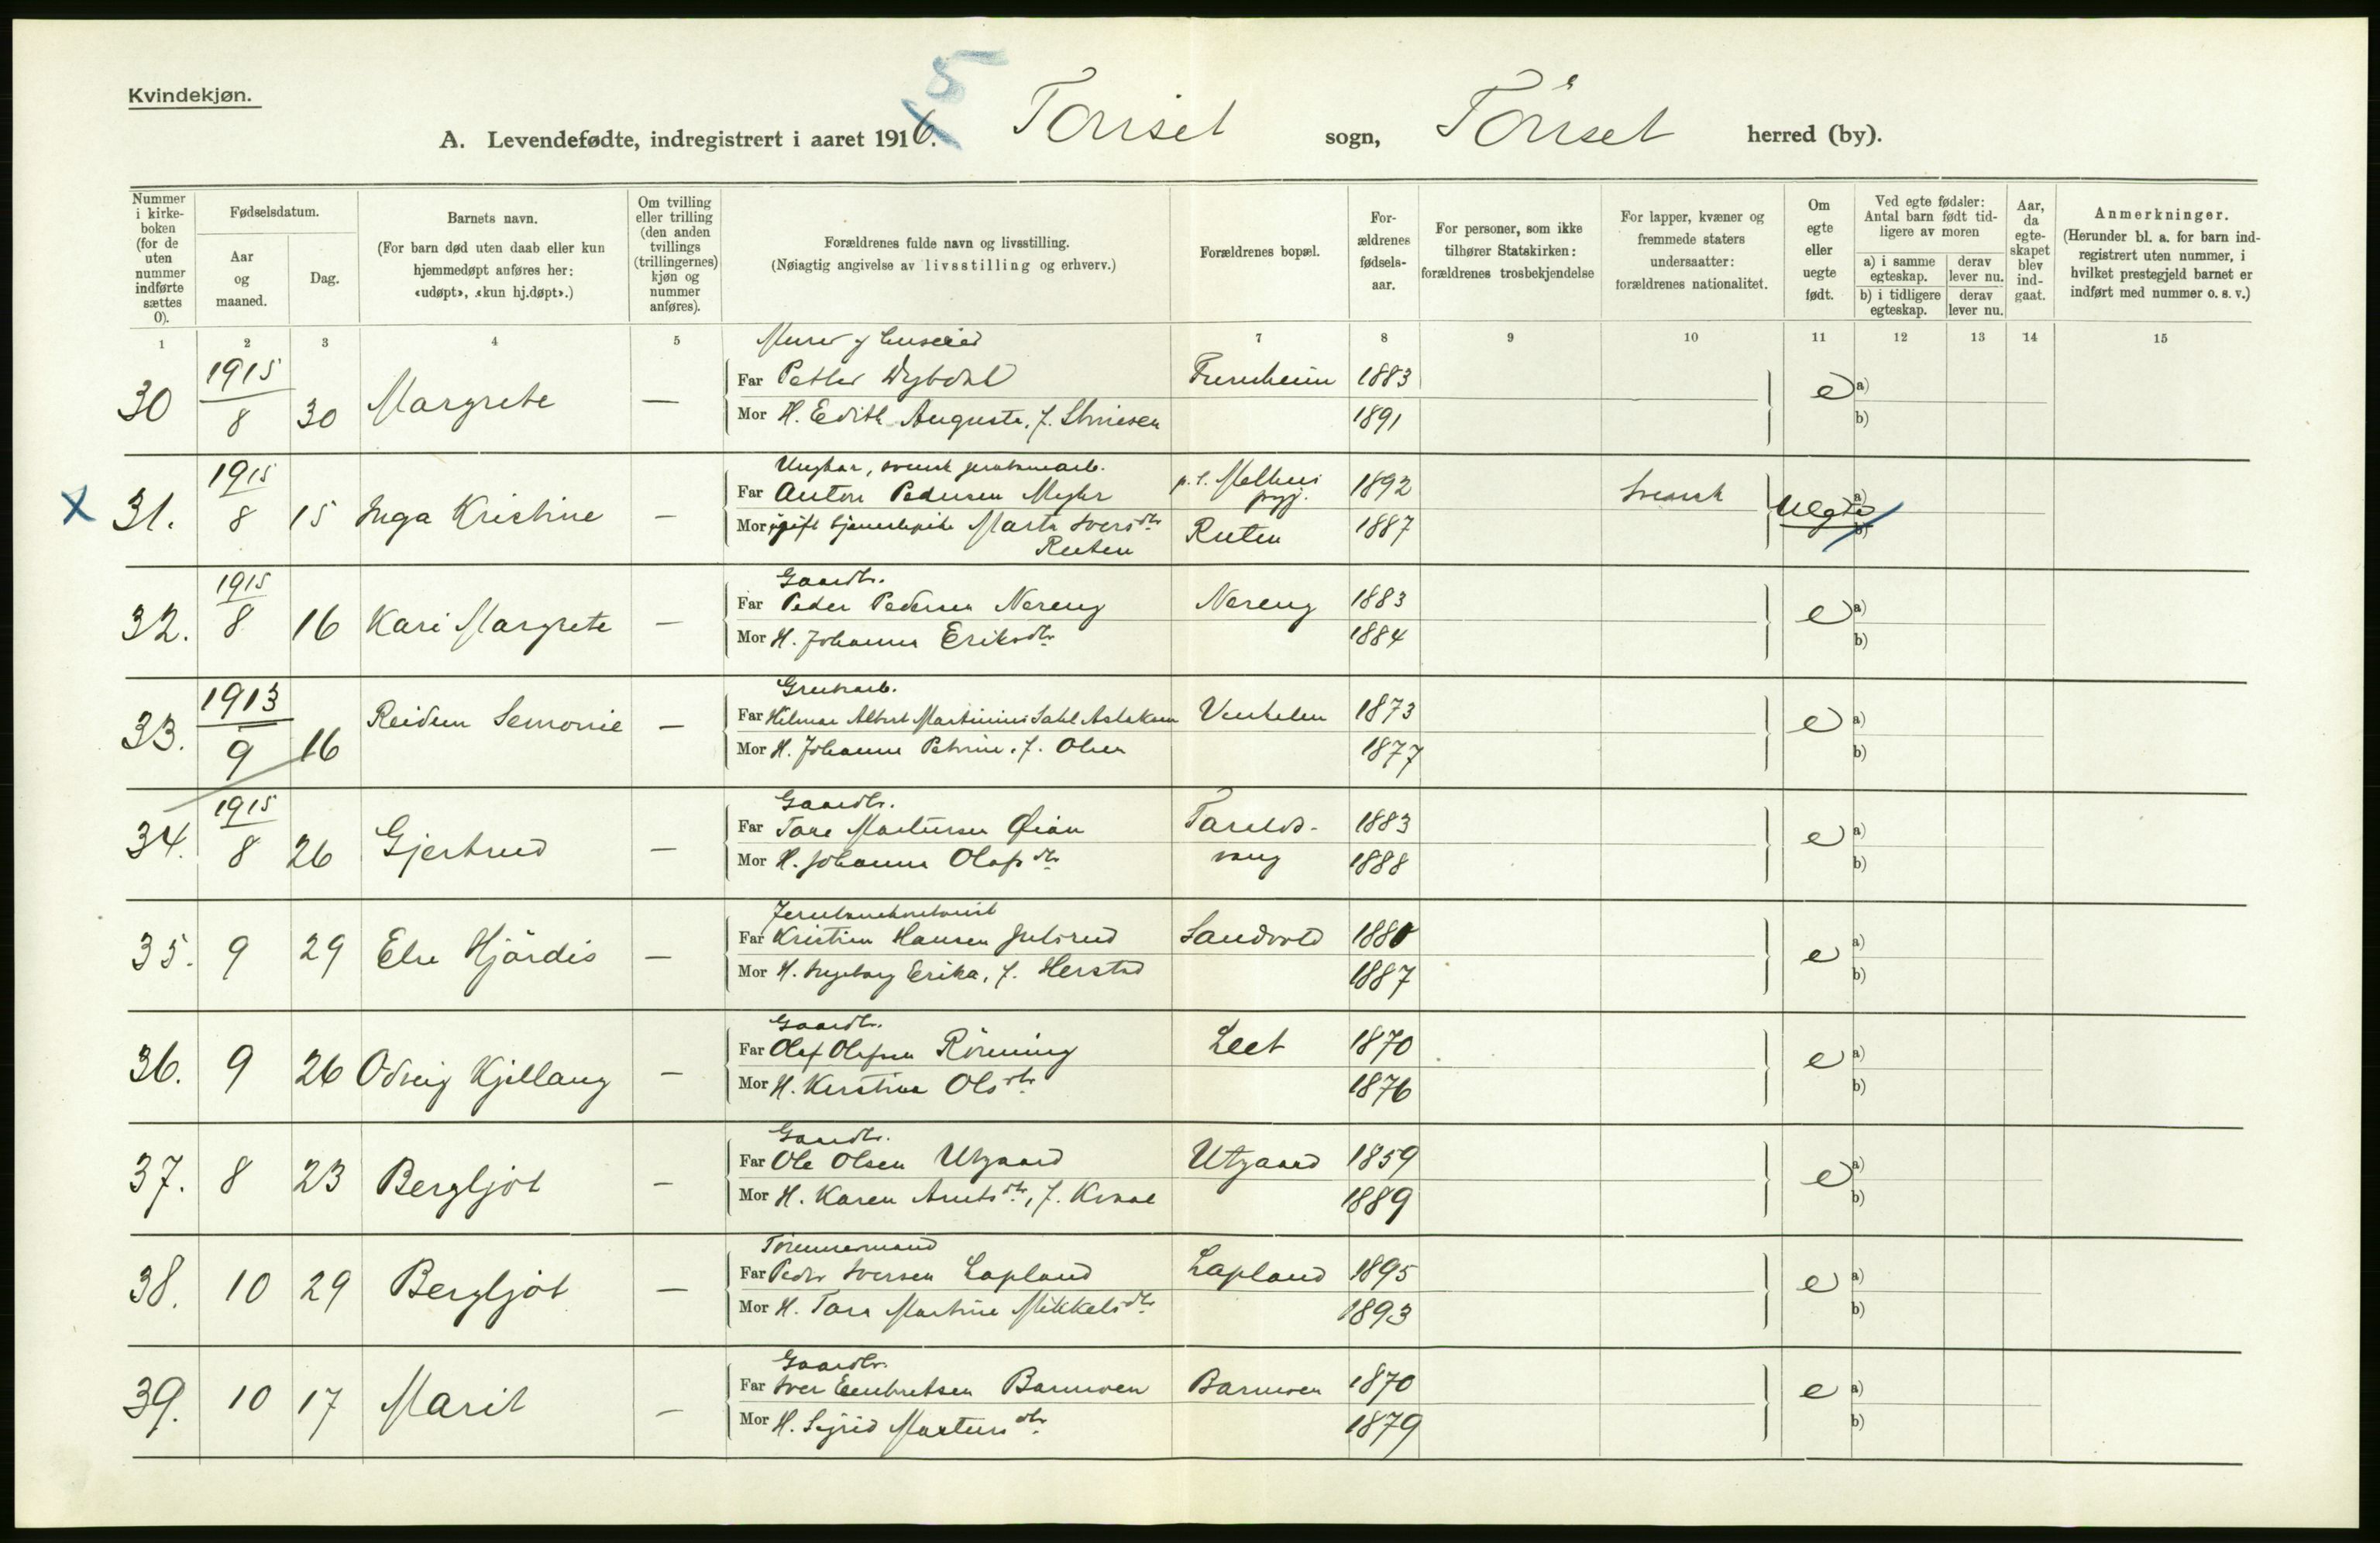 Kvindekjøn.
5
A. Levendefødte, indregistrert i aaret 1916. Tönset sogn, Tönset herred (by).
Nummer i kirkeboken (for de uten nummer indførte sættes 0).
Fødselsdatum.
Aar og maaned.
Dag.
Barnets navn.
(For barn død uten daab eller kun hjemmedøpt anføres her: «udøpt», «kun hj.døpt».)
Om tvilling eller trilling (den anden tvillings (trillingernes) kjøn og nummer anføres).
Forældrenes fulde navn og livsstilling.
(Nøiagtig angivelse av livsstilling og erhverv.)
Forældrenes bopæl.
Forældrenes fødselsaar.
For personer, som ikke tilhører Statskirken: forældrenes trosbekjendelse
For lapper, kvæner og fremmede staters undersaatter: forældrenes nationalitet.
Om egte eller uegte født.
Ved egte fødsler: Antal barn født tidligere av moren
a) i samme egteskap. derav lever nu.
b) i tidligere egteskap. derav lever nu.
Aar, da egteskapet blev indgaat.
Anmerkninger.
(Herunder bl. a. for barn indregistrert uten nummer, i hvilket prestegjeld barnet er indført med nummer o. s. v.)
1 2 3 4 5 7 8 9 10 11 12 13 14 15
Murer og
30 1915 8 30 Margrete — Far Petter 1883 e a)
Mor H. Edith Augusta, f. 1891 b)
Ungkar, svensk
X 31. 1915 8 15 Inga Kristine — Far Anton Pedersen p.t. Melhus pgj. 1892 Svensk Uegte a)
Mor ugift tjenestepike Marta Iversdtr Ruten Ruten 1887 b)
Gaardbr.
32. 1915 8 16 Kari Margrete — Far Peder Pedersen Nereng Nereng 1883 e a)
Mor H. Johanna Eriksdtr. 1884 b)
Grubearb.
33. 1913 9 16 Reidun — Far Hilmar Albert Martinius 1873 e a)
Mor H. Johanne Petrine, f. Olsen 1877 b)
Gaardbr.
34. 1915 8 26 Gjertrud — Far Tore Mortensen Øian 1883 e a)
Mor H. Johanna Olafsdtr. vang 1888 b)
35. 9 29 Else Hjördis — Far Kristian Hansen Julsrud Sandvold 1880 e a)
Mor H. Ingeborg Erika, f. Herstad 1887 b)
Gaardbr.
36. 9 26 Odveig Kjellaug — Far Olaf Olafsen Rönning Leet 1870 e a)
Mor H. Kerstina Olsdtr. 1876 b)
Gaardbr.
37. 8 23 Bergljot — Far Ole Olsen Utgaard Utgaard 1859 e a)
Mor H. Karen Arntsdtr., f. Kvaal 1889 b)
Tömmermand
38. 10 29 Bergljot — Far Peder Iversen Lapland Lapland 1895 e a)
Mor H. Tora Martine Mikkelsdtr. 1893 b)
Gaardbr.
39. 10 17 Marit — Far Iver Embretsen Barmoen Barmoen 1870 e a)
Mor H. Sigrid Mortensdtr. 1879 b)